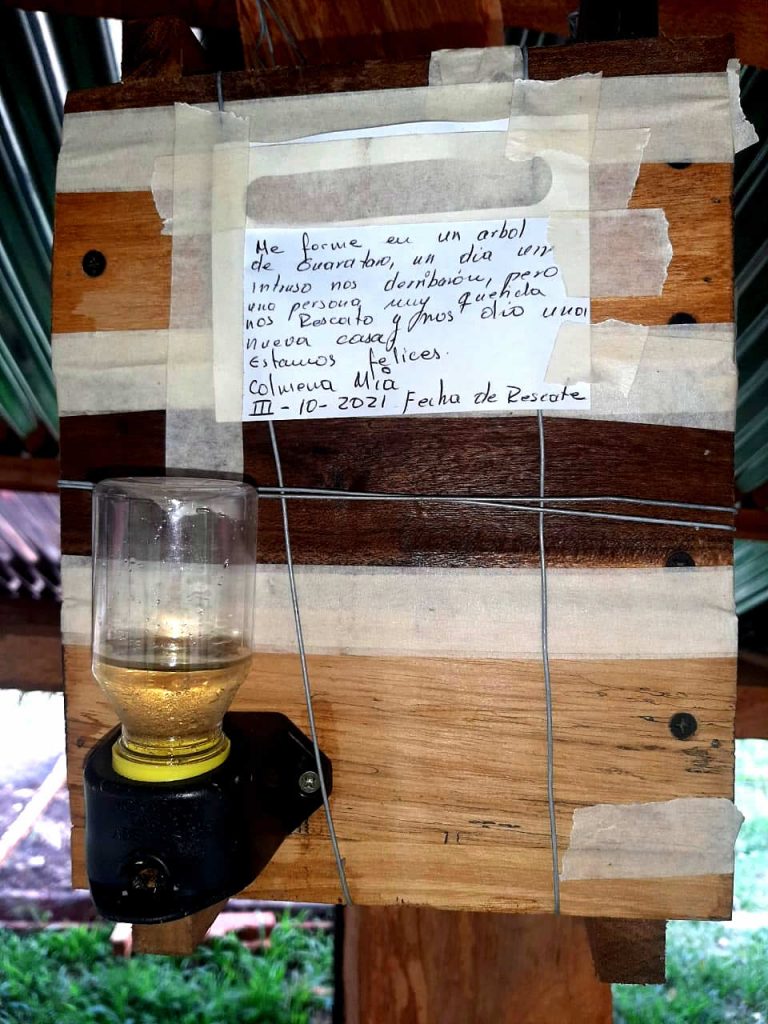 Me forme en un arbol
de Guarataro, un dia un
intruso nos derribaron, pero
una persona muy querida
nos Rescato y nos dio una
nueva casa,
Estamos felices.
Colmena Mia
III - 10 - 2021 Fecha de Rescate